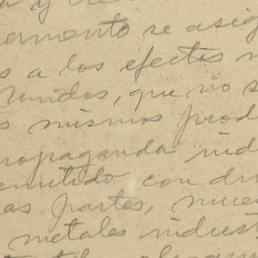 y
amento se asig
s a los efectos n
Unidos, que no s
s mismos prod
propaganda ind
emitido con du
as partes, nue
metales indust